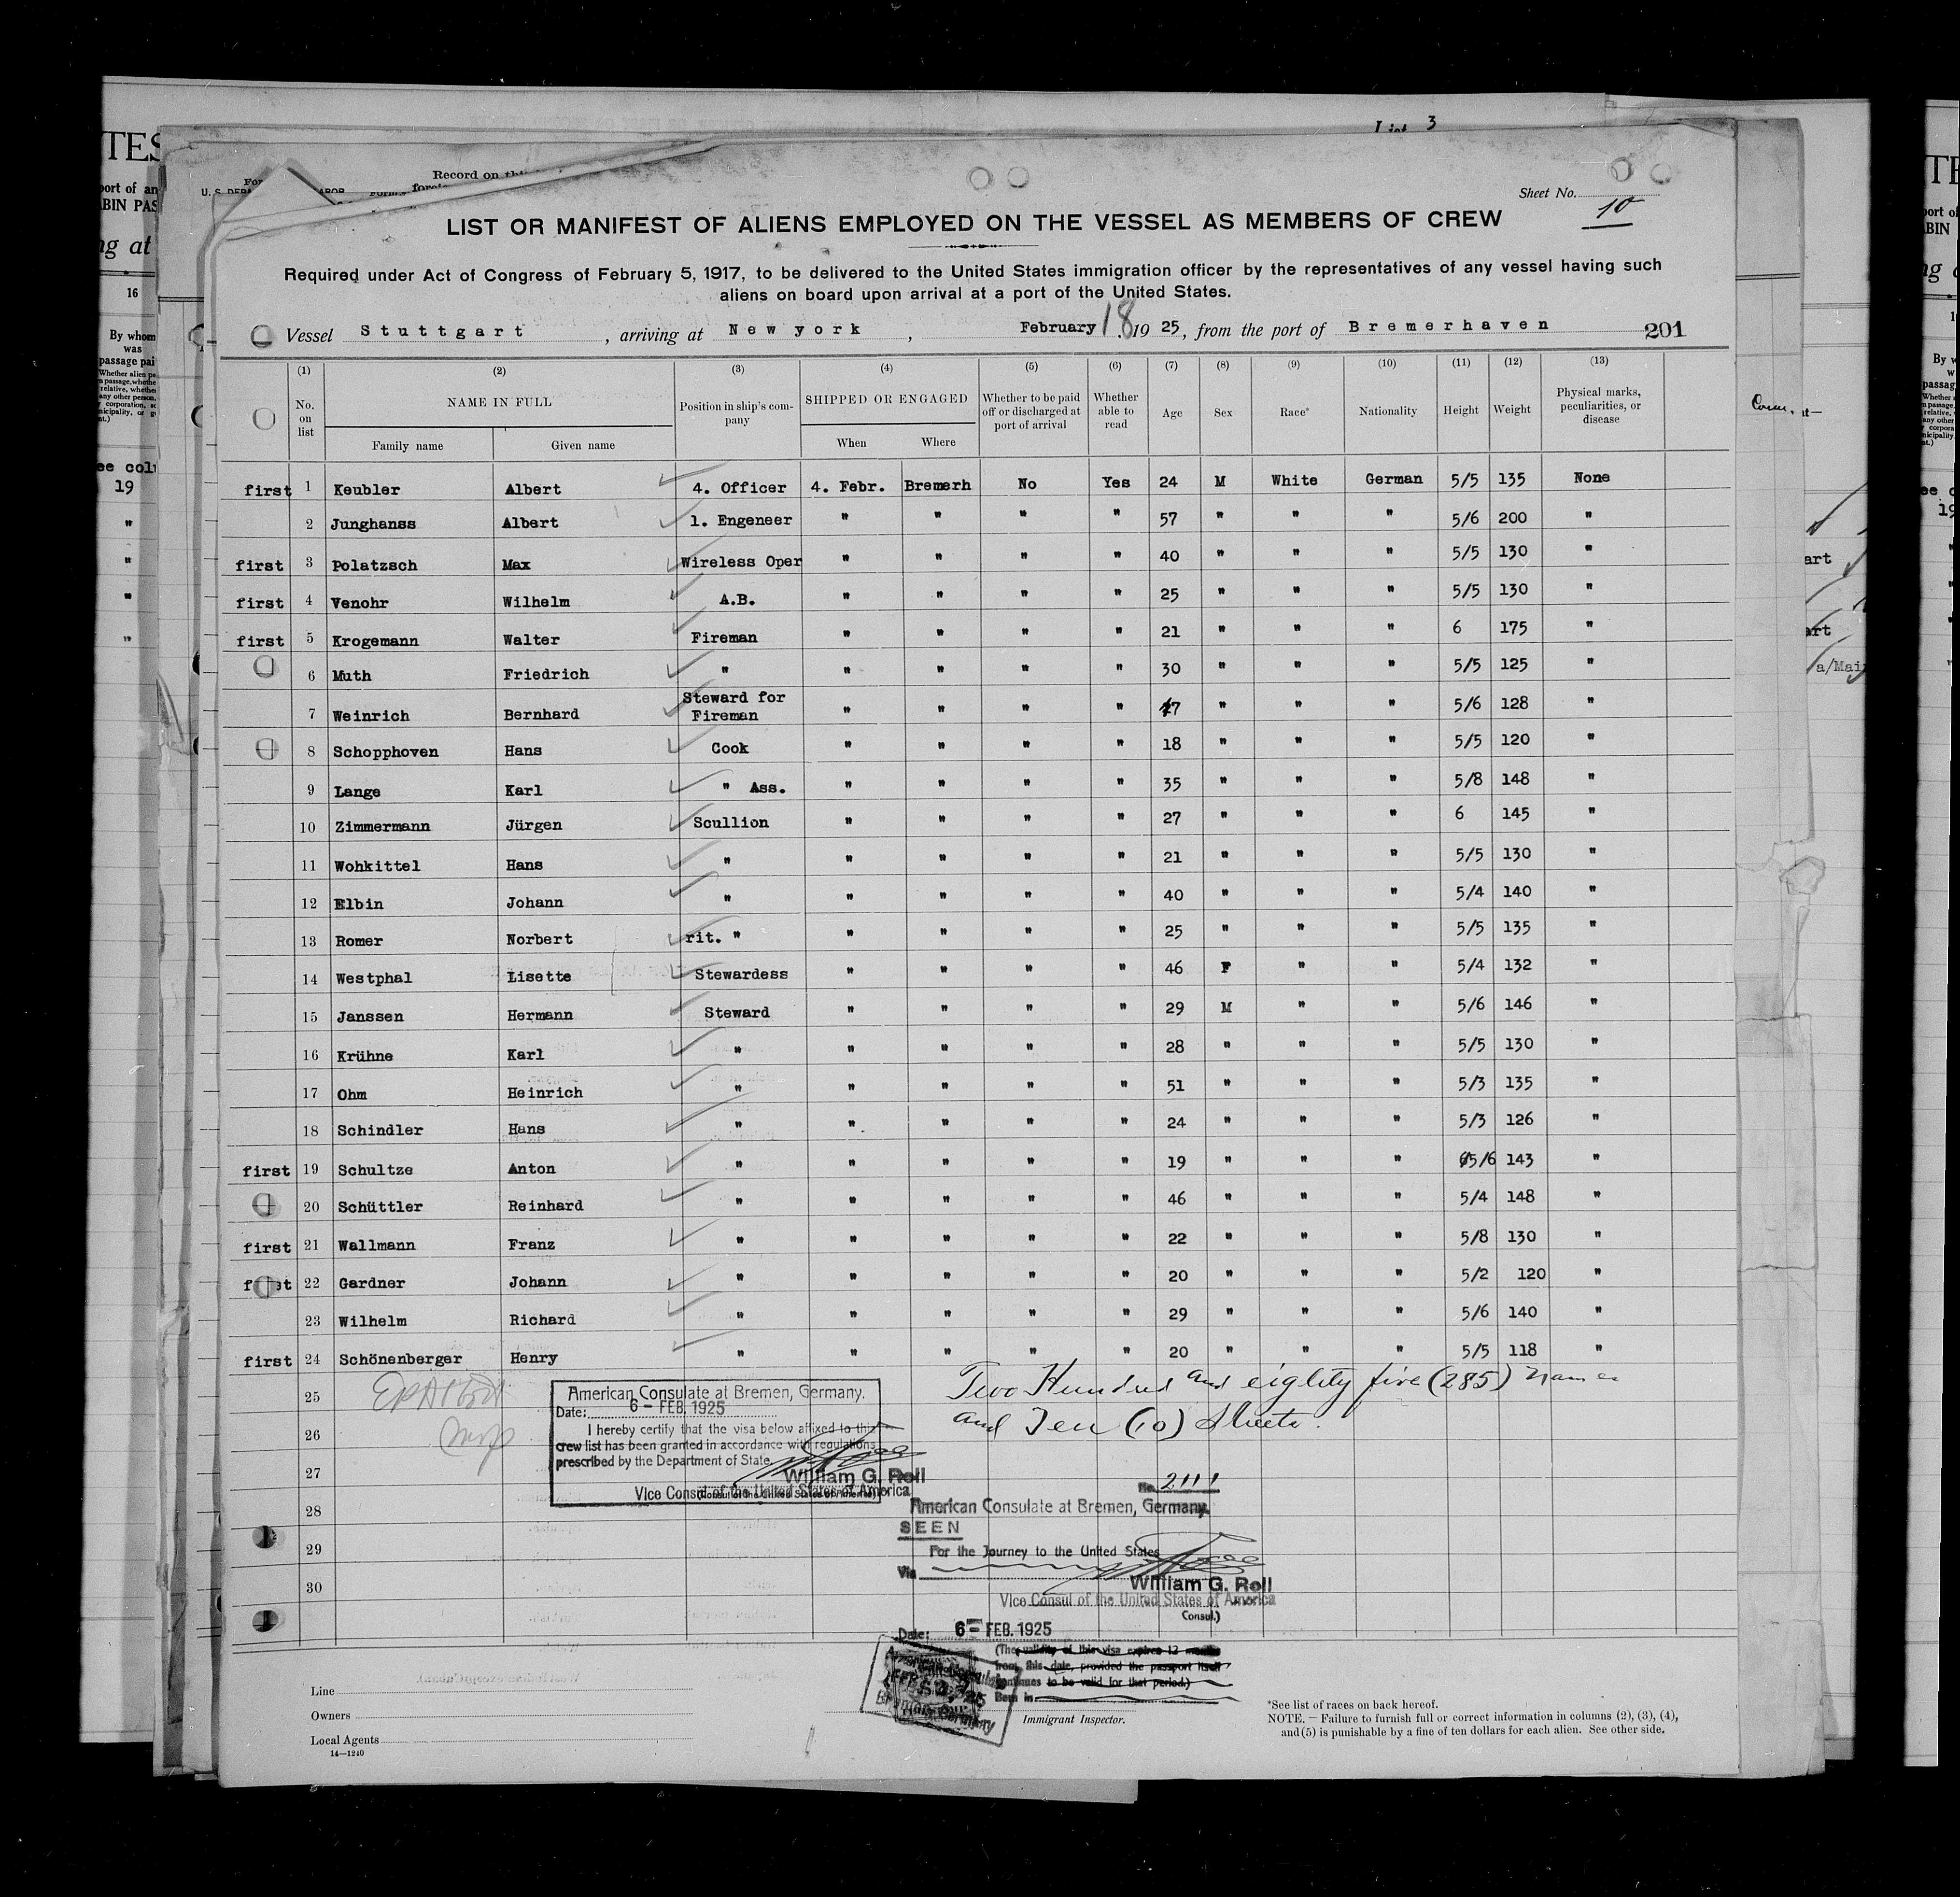 List 3
TES
port of an
ABIN PAS
ng at
16
By whom
was
passage pai
ee colu
19
"
"
"
"
Record on thi
U. S. DEPA
Sheet No. 10
LIST OR MANIFEST OF ALIENS EMPLOYED ON THE VESSEL AS MEMBERS OF CREW
Required under Act of Congress of February 5, 1917, to be delivered to the United States immigration officer by the representatives of any vessel having such
aliens on board upon arrival at a port of the United States.
Vessel Stuttgart, arriving at New york, February 18 1925, from the port of Bremerhaven 201
(1) (2) (3) (4) (5) (6) (7) (8) (9) (10) (11) (12) (13)
No. on list NAME IN FULL Position in ship's company SHIPPED OR ENGAGED Whether to be paid off or discharged at port of arrival Whether able to read Age Sex Race* Nationality Height Weight Physical marks, peculiarities, or disease
Family name Given name When Where
first 1 Keubler Albert 4. Officer 4. Febr. Bremerh No Yes 24 M White German 5/5 135 None
2 Junghanss Albert 1. Engeneer " " " " 57 " " " 5/6 200 "
first 3 Polatzsch Max Wireless Oper " " " " 40 " " " 5/5 130 "
first 4 Venohr Wilhelm A.B. " " " " 25 " " " 5/5 130 "
first 5 Krogemann Walter Fireman " " " " 21 " " " 6 175 "
6 Muth Friedrich " " " " " 30 " " " 5/5 125 "
7 Weinrich Bernhard Steward for Fireman " " " " 47 " " " 5/6 128 "
8 Schopphoven Hans Cook " " " " 18 " " " 5/5 120 "
9 Lange Karl " Ass. " " " " 35 " " " 5/8 148 "
10 Zimmermann Jürgen Scullion " " " " 27 " " " 6 145 "
11 Wohkittel Hans " " " " " 21 " " " 5/5 130 "
12 Elbin Johann " " " " " 40 " " " 5/4 140 "
13 Romer Norbert rit. " " " " " 25 " " " 5/5 135 "
14 Westphal Lisette Stewardess " " " " 46 F " " 5/4 132 "
15 Janssen Hermann Steward " " " " 29 M " " 5/6 146 "
16 Krühne Karl " " " " " 28 " " " 5/5 130 "
17 Ohm Heinrich " " " " " 51 " " " 5/3 135 "
18 Schindler Hans " " " " " 24 " " " 5/3 126 "
first 19 Schultze Anton " " " " " 19 " " " 5/6 143 "
20 Schüttler Reinhard " " " " " 46 " " " 5/4 148 "
first 21 Wallmann Franz " " " " " 22 " " " 5/8 130 "
first 22 Gardner Johann " " " " " 20 " " " 5/2 120 "
23 Wilhelm Richard " " " " " 29 " " " 5/6 140 "
first 24 Schönenberger Henry " " " " " 20 " " " 5/5 118 "
25
26
27
28
29
30
Two Hundred and eighty five (285) names
and Ten (10) sheets.
American Consulate at Bremen, Germany.
Date: 6 - FEB. 1925
I hereby certify that the visa below affixed to this
crew list has been granted in accordance with regulations
prescribed by the Department of State.
William G. Roll
Vice Consul of the United States of America
No. 2111
American Consulate at Bremen, Germany.
SEEN
For the Journey to the United States
Via
William G. Roll
Vice Consul of the United States of America
Consul.)
Date: 6 - FEB. 1925
(The validity of this visa expires 12 months
from this date, provided the passport itself
continues to be valid for that period.)
Born in
Immigrant Inspector.
Line
Owners
Local Agents
14—1240
*See list of races on back hereof.
NOTE. — Failure to furnish full or correct information in columns (2), (3), (4),
and (5) is punishable by a fine of ten dollars for each alien. See other side.